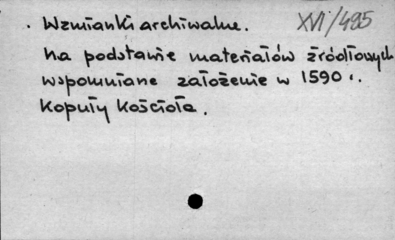 . Wzmianki archiwalne. XVI/495
Na podstawie materiałów źródłowych
wspomniane założenie w 1590 r.
Kopuły Kościoła.